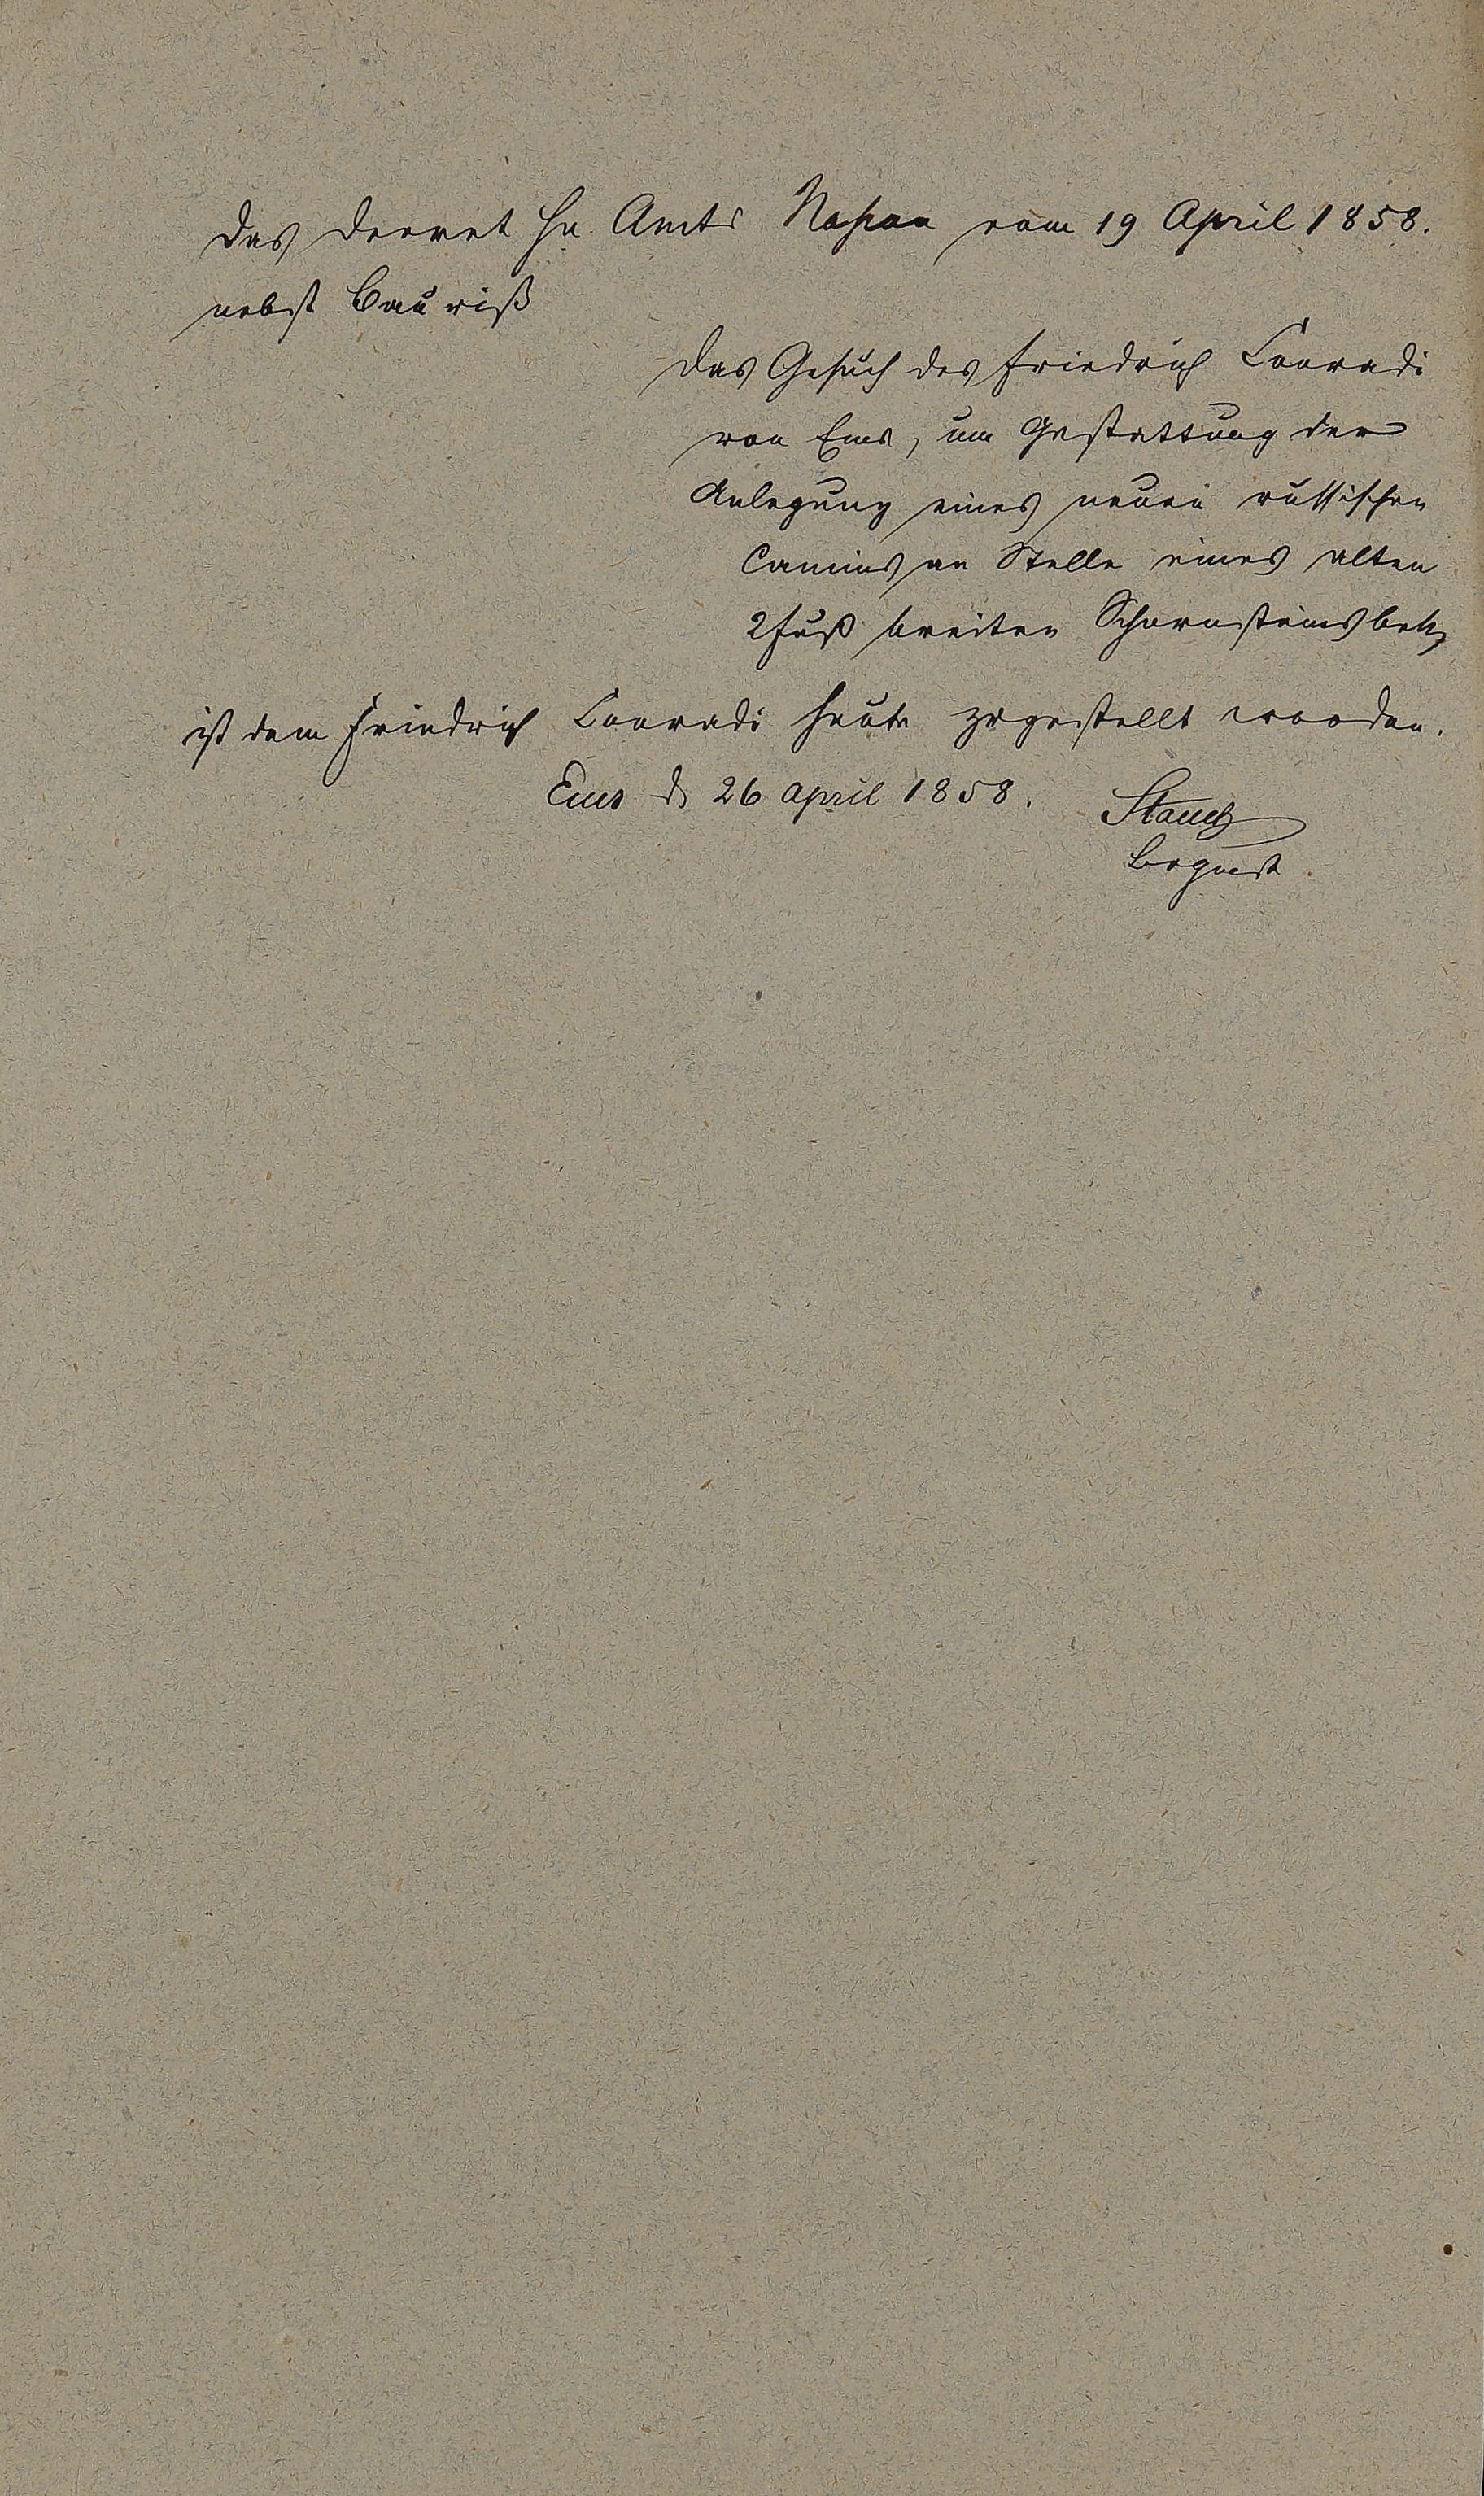 Das Decret Hzn Amts Nassau vom 19 April 1858.
nebst Bauriß
Das Gesuch des Friedrich Conradi
von Ems, um Gestattung der
Anlegung eines neuen russischen
Camins an Stelle eines alten
2 Fuß breiten Schornsteins betr
ist dem Friedrich Conradi heute zugestellt worden.
Ems d 26 April 1858.
Stauch